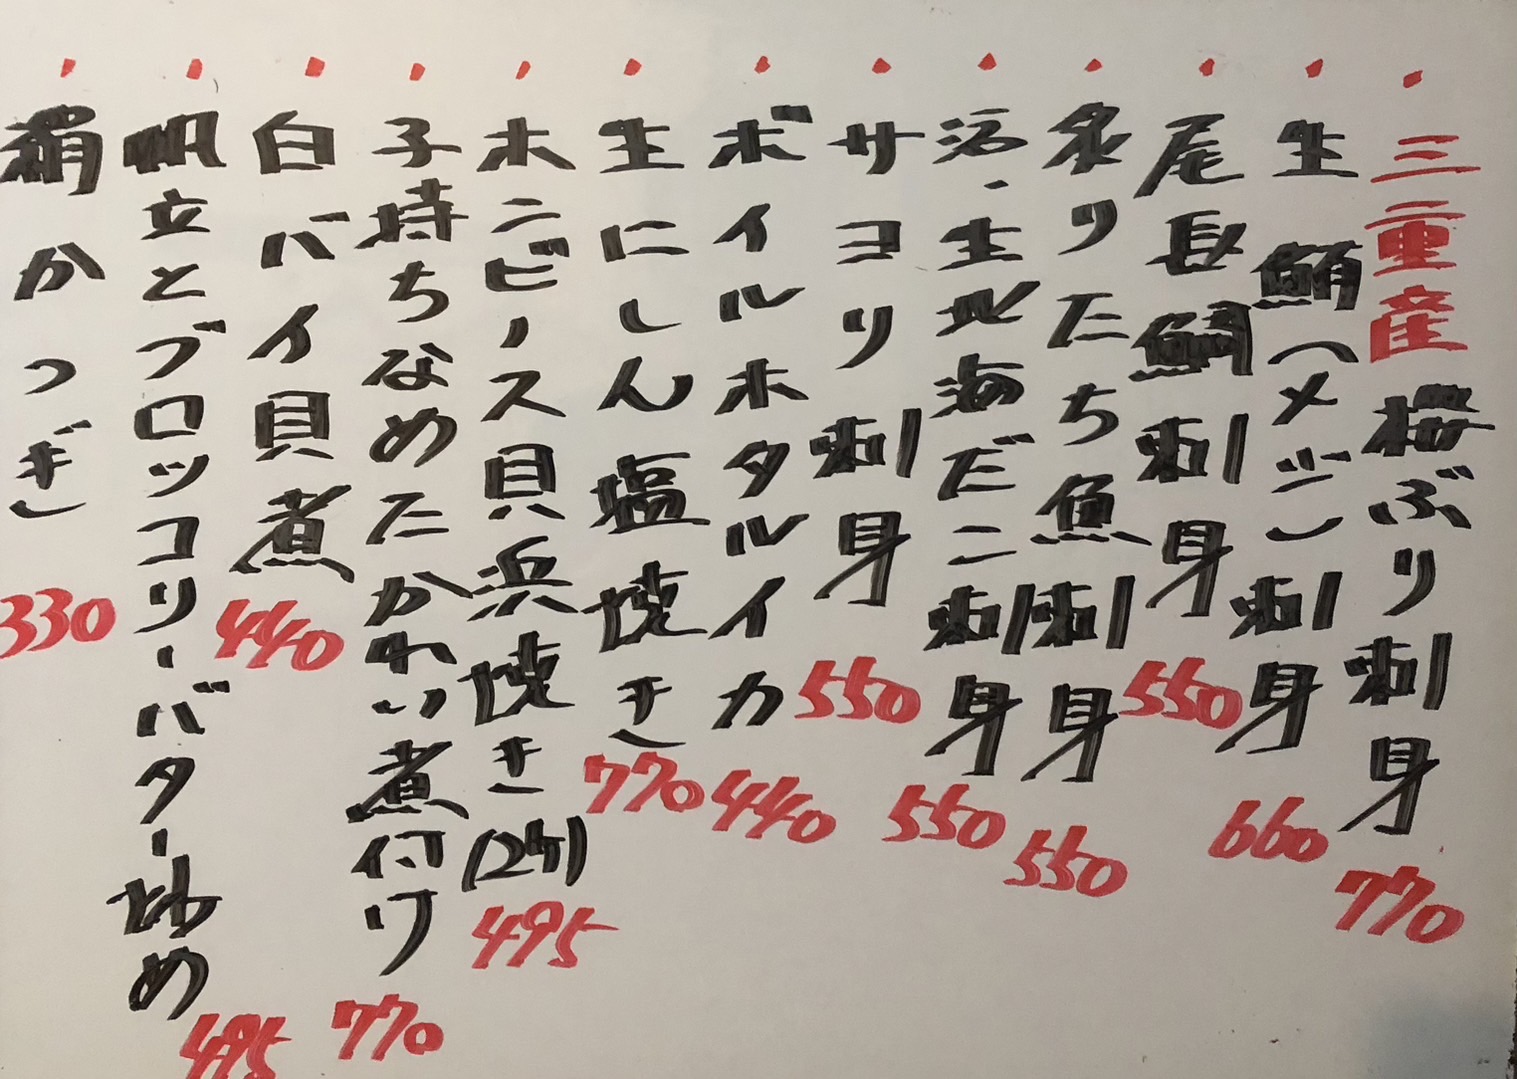 三重産 桜ぶり刺身 770
生鮪(メジ)刺身 660
尾長鯛刺身 550
炙りたち魚刺身 550
活・生地海だこ刺身 550
サヨリ刺身 550
ボイルホタルイカ 440
生にしん塩焼き 770
ホンビノス貝浜焼き(2ケ) 495
子持ちなめたかれい煮付け 770
白バイ貝煮 440
帆立とブロッコリーバター炒め 495
絹かつぎ 330